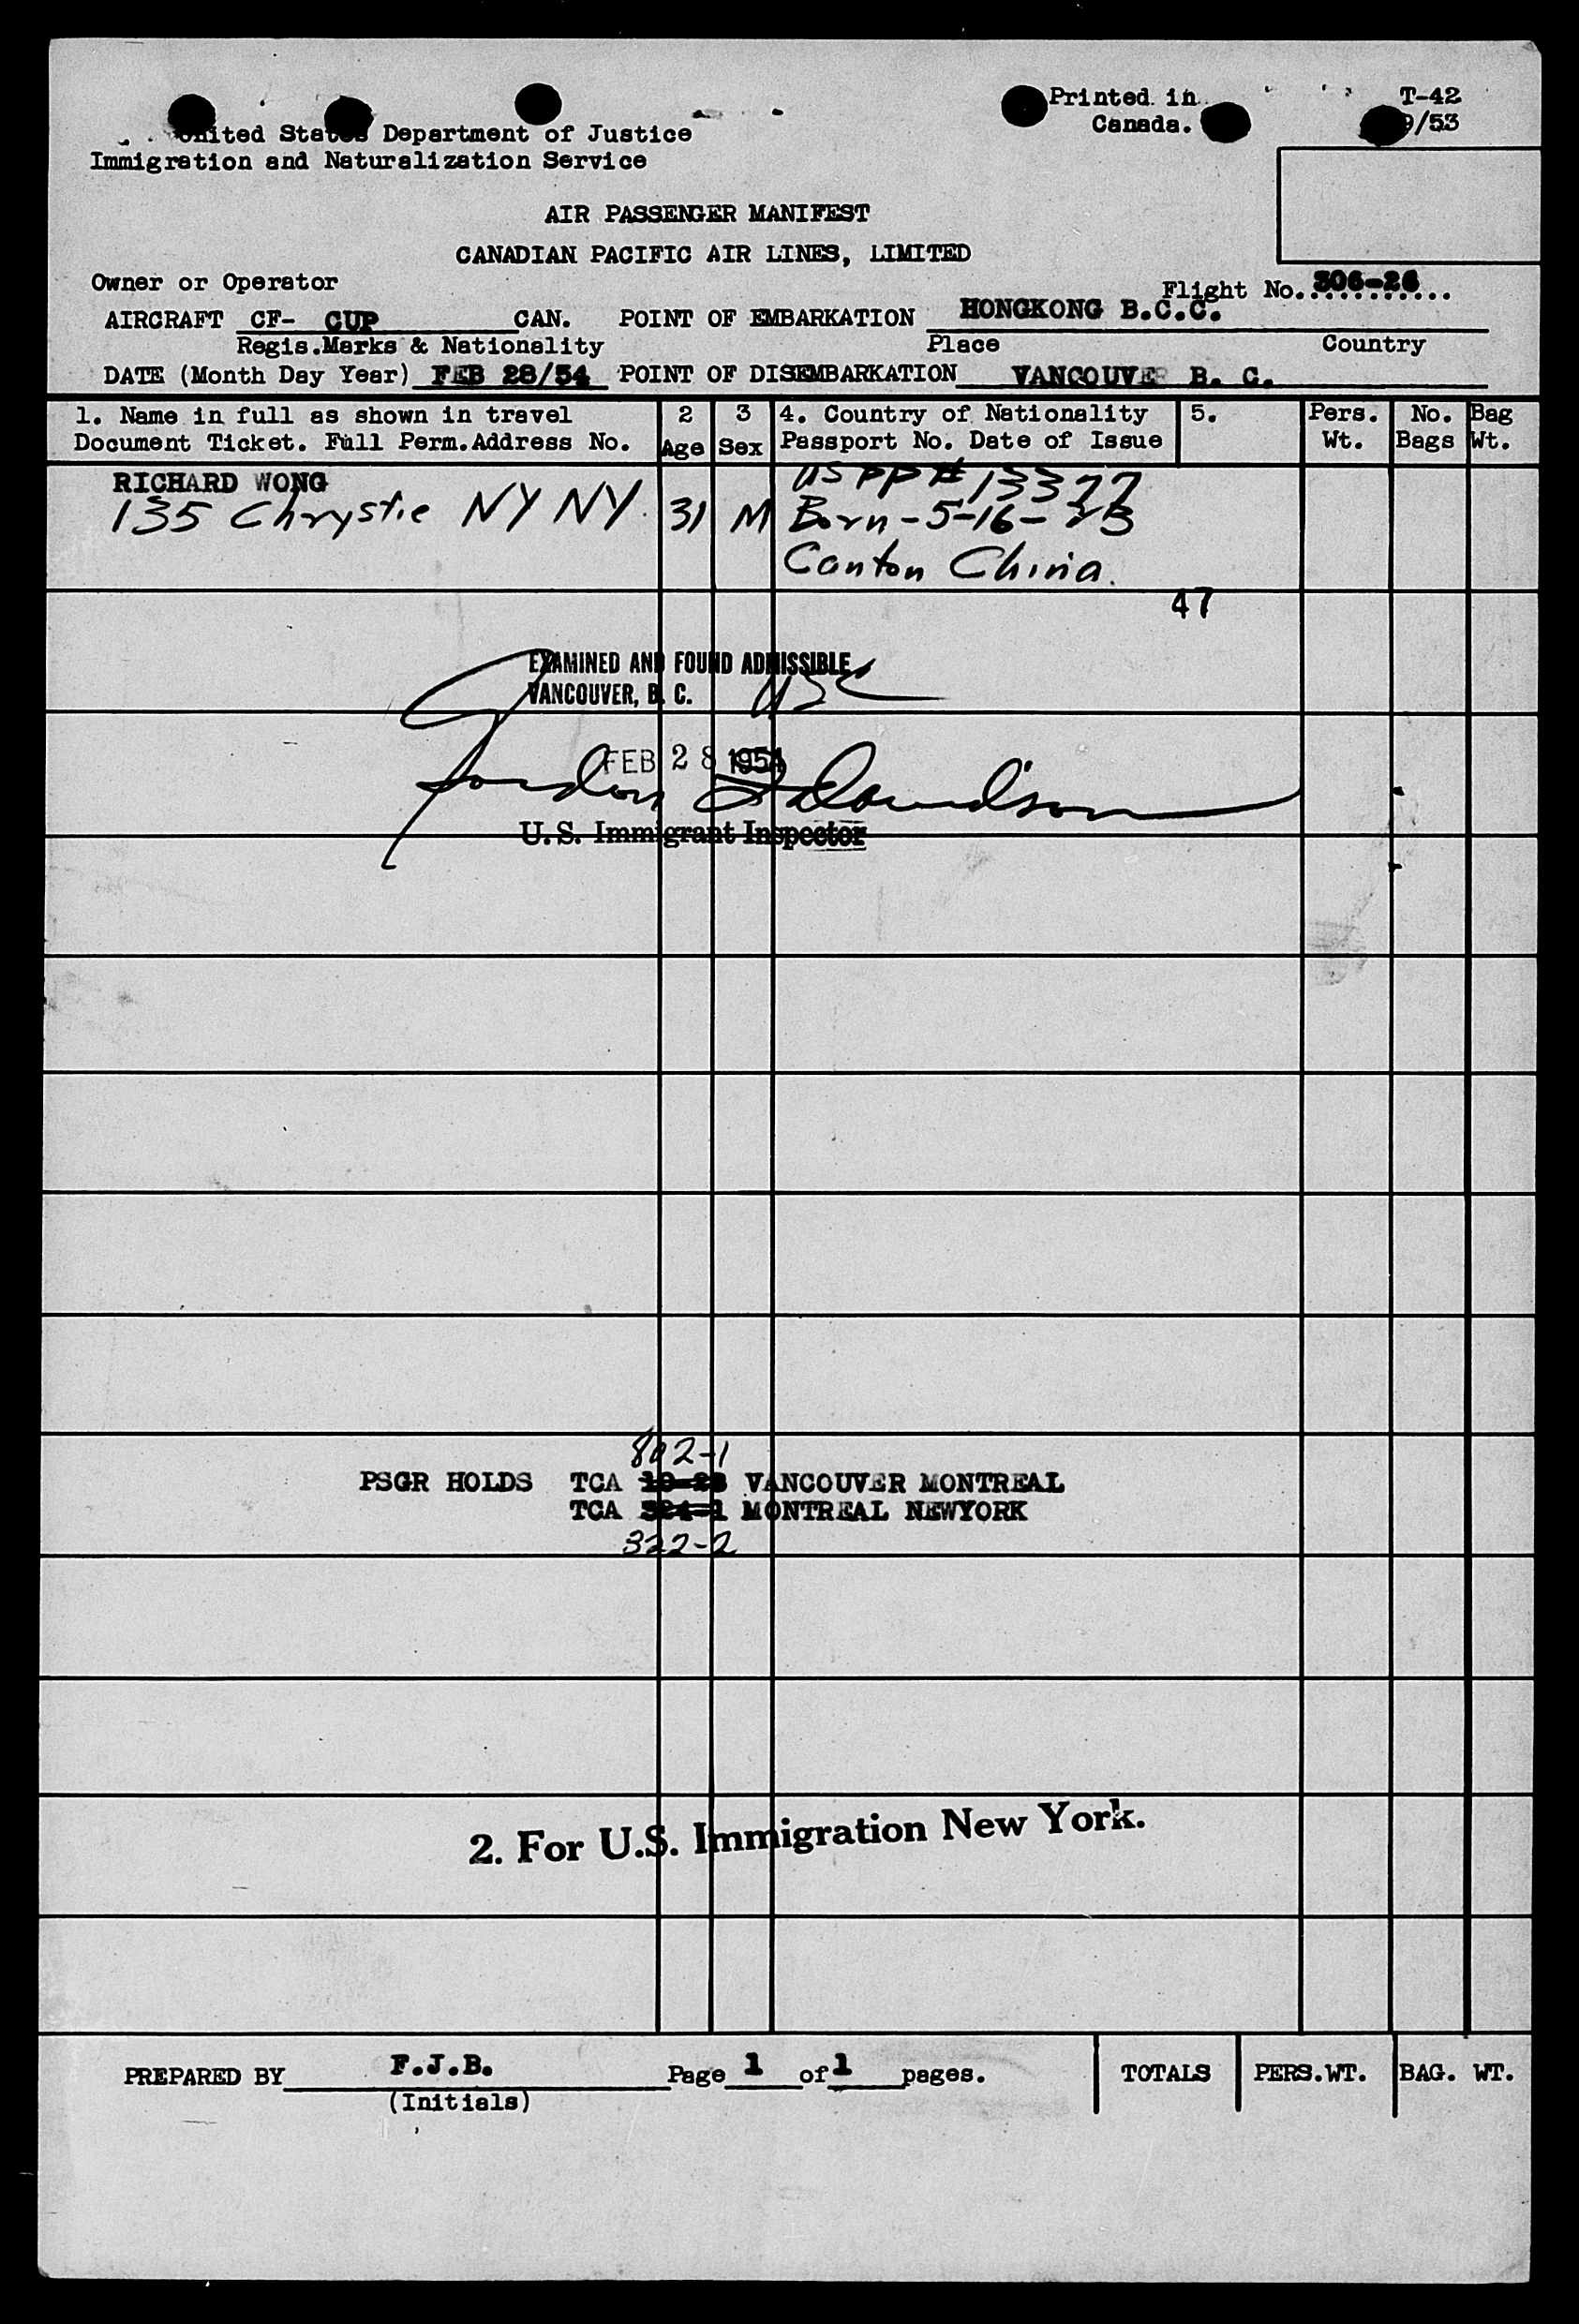 Printed in T-42
Canada. 9/53
United States Department of Justice
Immigration and Naturalization Service
AIR PASSENGER MANIFEST
CANADIAN PACIFIC AIR LINES, LIMITED
Owner or Operator Flight No. 306-26
AIRCRAFT CF- CUP CAN. POINT OF EMBARKATION HONGKONG B.C.C.
Regis.Marks & Nationality Place Country
DATE (Month Day Year) FEB 28/54 POINT OF DISEMBARKATION VANCOUVER B. C.
1. Name in full as shown in travel 2 3 4. Country of Nationality 5. Pers. No. Bag
Document Ticket. Full Perm.Address No. Age Sex Passport No. Date of Issue Wt. Bags Wt.
RICHARD WONG US PP # 13377
135 Chrystie NY NY. 31 M Born - 5-16-23
Canton China.
47
EXAMINED AND FOUND ADMISSIBLE
VANCOUVER, B. C. USC
FEB 28 1954
Gordon Davidson
U.S. Immigrant Inspector
802-1
PSGR HOLDS TCA VANCOUVER MONTREAL
TCA 324-1 MONTREAL NEWYORK
322-2
2. For U.S. Immigration New York.
PREPARED BY F.J.B. Page 1 of 1 pages. TOTALS PERS.WT. BAG. WT.
(Initials)